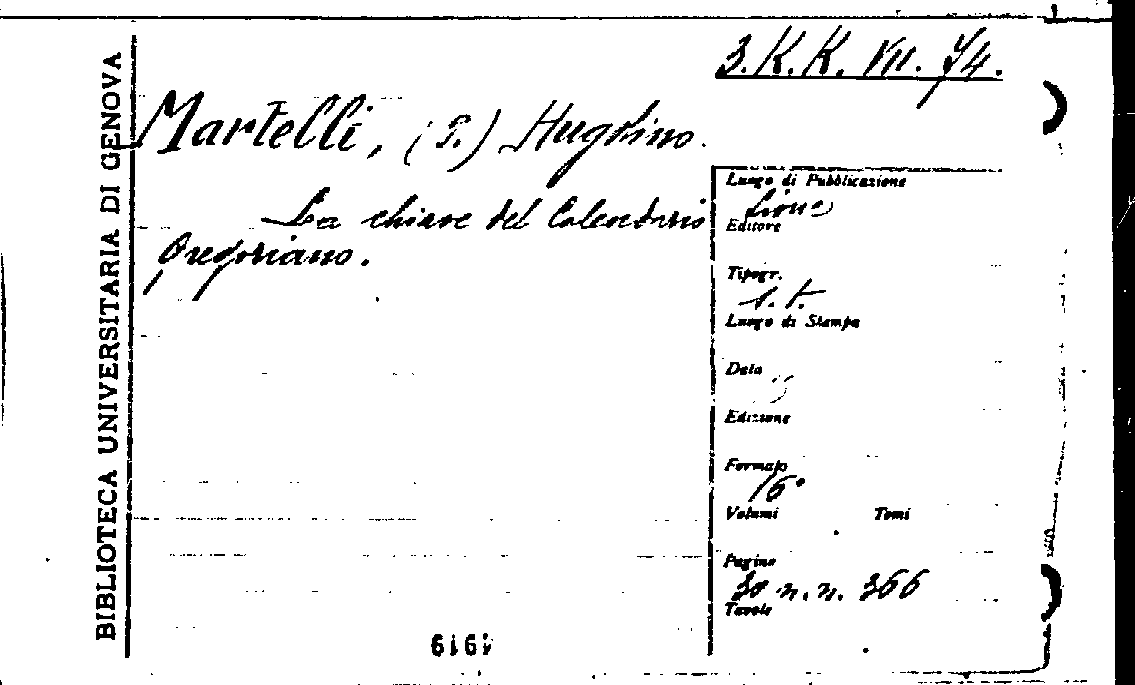 3. K. K. VII. 74.
BIBLIOTECA UNIVERSITARIA DI GENOVA
Martelli, (P.) Hugolino.
La chiave del Calendario
Gregoriano.
Luogo di Pubblicazione
Lione
Editore
Tipogr.
s. t.
Luogo di Stampa
Data
Edizione
Formato
16°
Volumi Tomi
Pagine
30 n. n. 366
Tavole